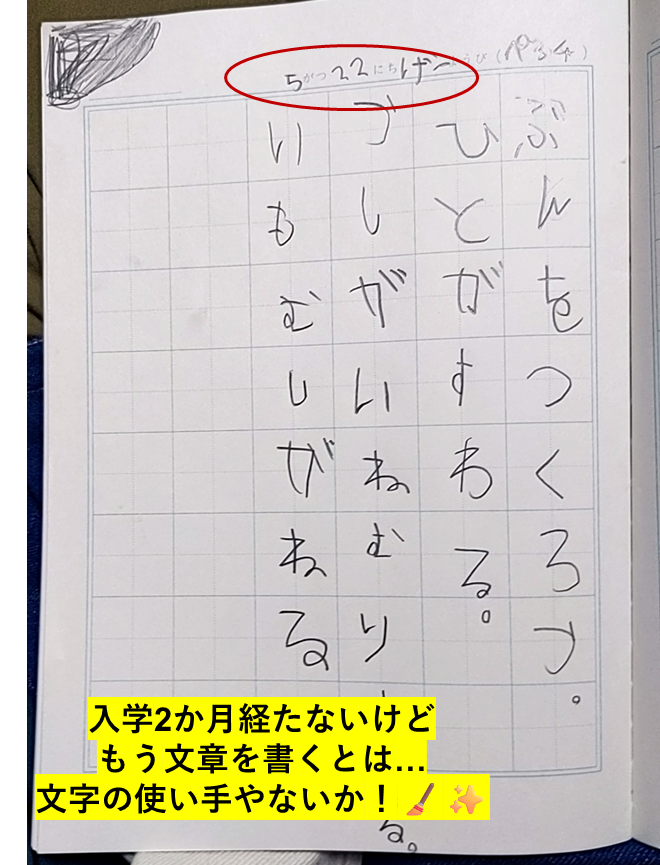 5がつ22にち げーようび（
ぶんをつくろう。
ひとがすわる。
うしがいねむり る。
いもむしがねる
入学2か月経たないけど
もう文章を書くとは…
文字の使い手やないか！🖌️✨